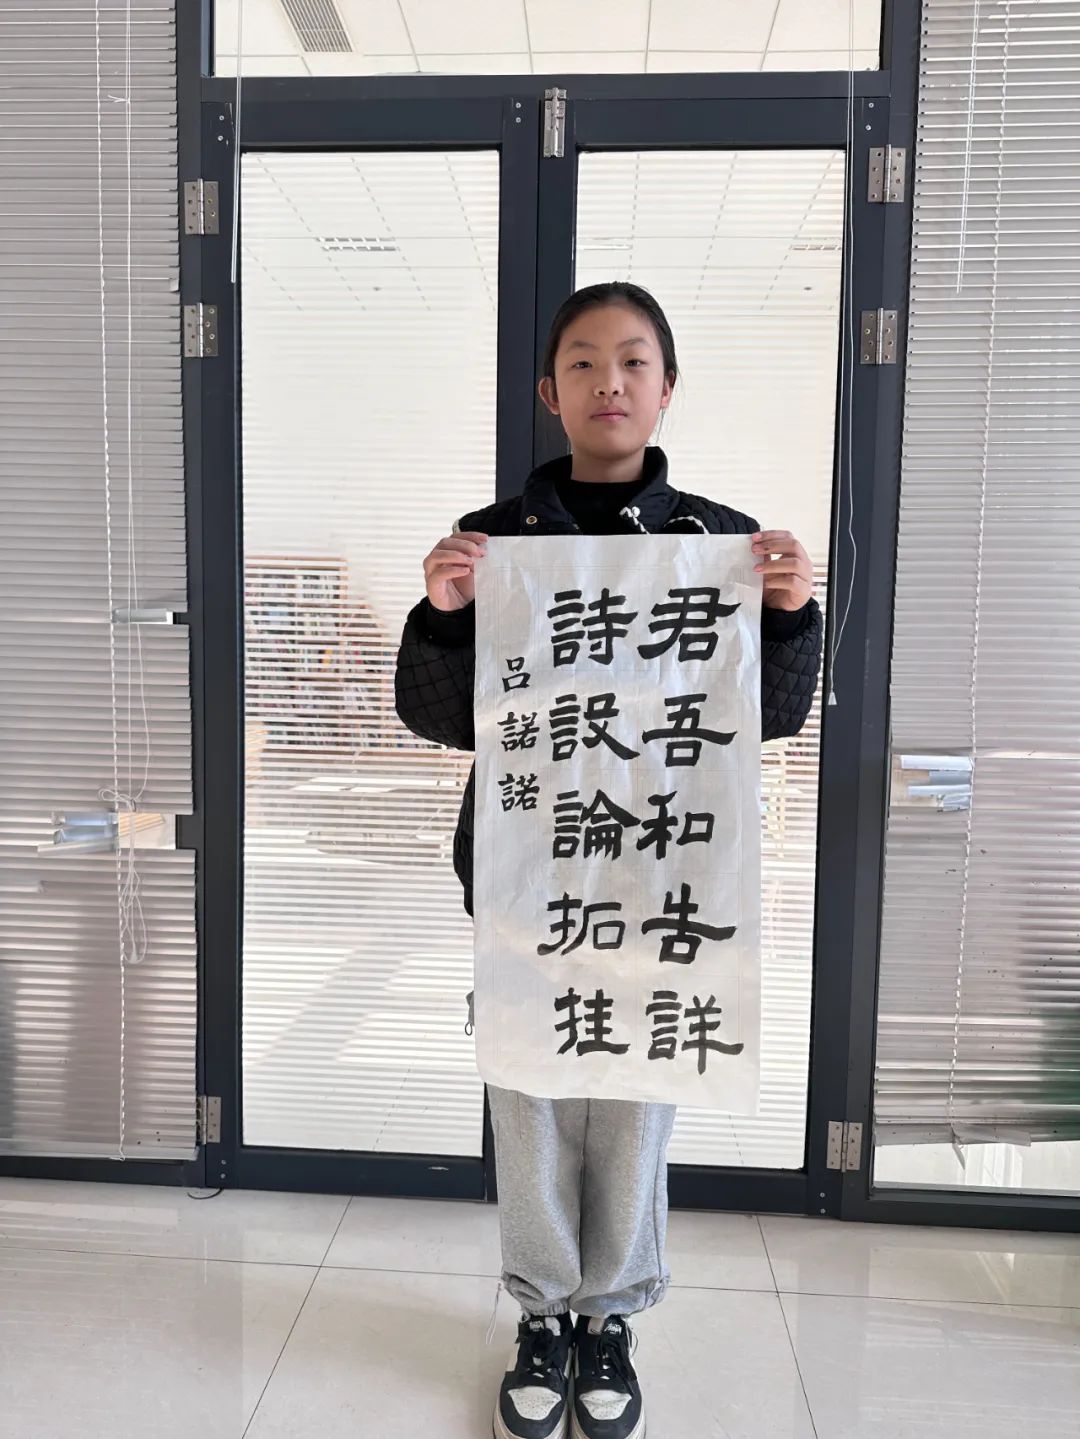 君吾和告詳
詩設論拓挂
呂諾諾